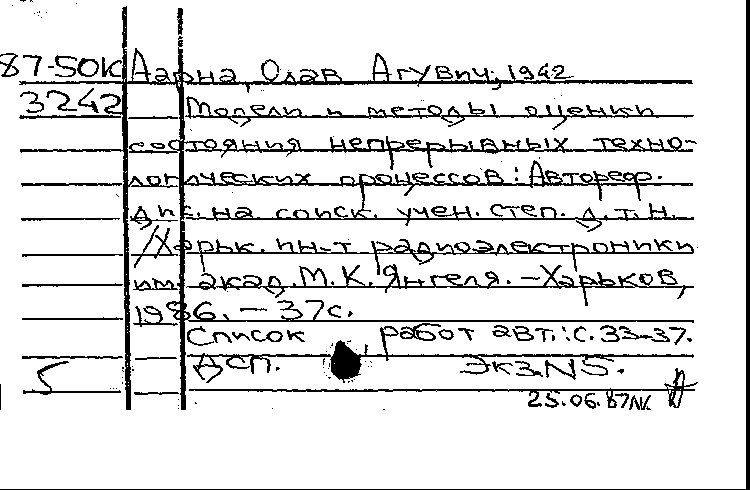 87-50К Аарна, Олав Агувич, 1942
3242 Модели и методы оценки
состояния непрерывных техно-
логических процессов: Автореф.
дис. на соиск. учен. степ. д.т.н.
/Харьк. ин-т радиоэлектроники
им. акад. М.К. Янгеля. - Харьков,
1986. - 37с.
Список работ авт.: с. 33-37.
5 ДСП. Экз.N5.
25.06.87